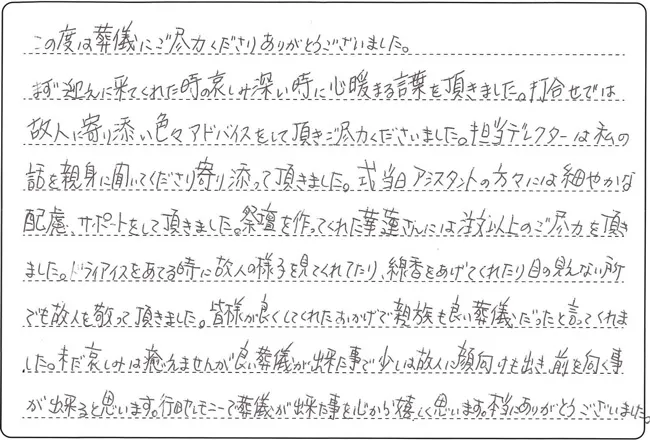 この度は葬儀にご尽力くださりありがとうございました。
まず迎えに来てくれた時の哀しみ深い時に心暖まる言葉を頂きました。打合せでは
故人に寄り添い色々アドバイスをして頂きご尽力くださいました。担当ディレクターは私の
話を親身に聞いてくださり寄り添って頂きました。式当日アシスタントの方々には細やかな
配慮、サポートをして頂きました。祭壇を作ってくれた華蓮さんには注文以上のご尽力を頂き
ました。ドライアイスをあてる時に故人の様子を見てくれてたり、線香をあげてくれたり目の見えない所
でも故人を敬って頂きました。皆様が良くしてくれたおかげで親族も良い葬儀だったと言ってくれま
した。まだ哀しみは癒えませんが良い葬儀が出来た事で少しは故人に顔向けも出き、前を向く事
が出来ると思います。行田セレモニーで葬儀が出来た事を心から嬉しく思います。本当にありがとうございました。